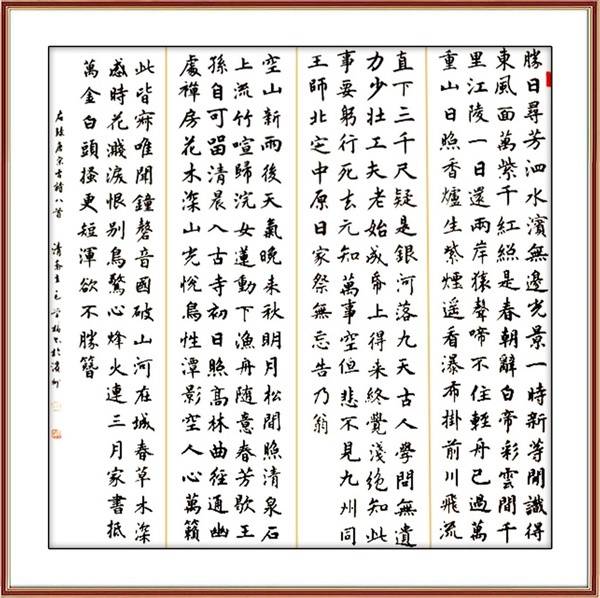 勝日尋芳泗水濱無邊光景一時新等閒識得
東風面萬紫千紅總是春朝辭白帝彩雲間千
里江陵一日還兩岸猿聲啼不住輕舟已過萬
重山日照香爐生紫煙遥看瀑布掛前川飛流
直下三千尺疑是銀河落九天古人學問無遺
力少壯工夫老始成帋上得來終覺淺絶知此
事要躬行死去元知萬事空但悲不見九州同
王師北定中原日家祭無忘告乃翁
空山新雨後天氣晚來秋明月松間照清泉石
上流竹喧歸浣女蓮動下漁舟隨意春芳歇王
孫自可留清晨入古寺初日照高林曲徑通幽
處禪房花木深山光悅鳥性潭影空人心萬籟
此皆寂唯聞鐘磬音國破山河在城春草木深
感時花濺淚恨别鳥驚心烽火連三月家書抵
萬金白頭搔更短渾欲不勝簪
右録唐宋古詩八首